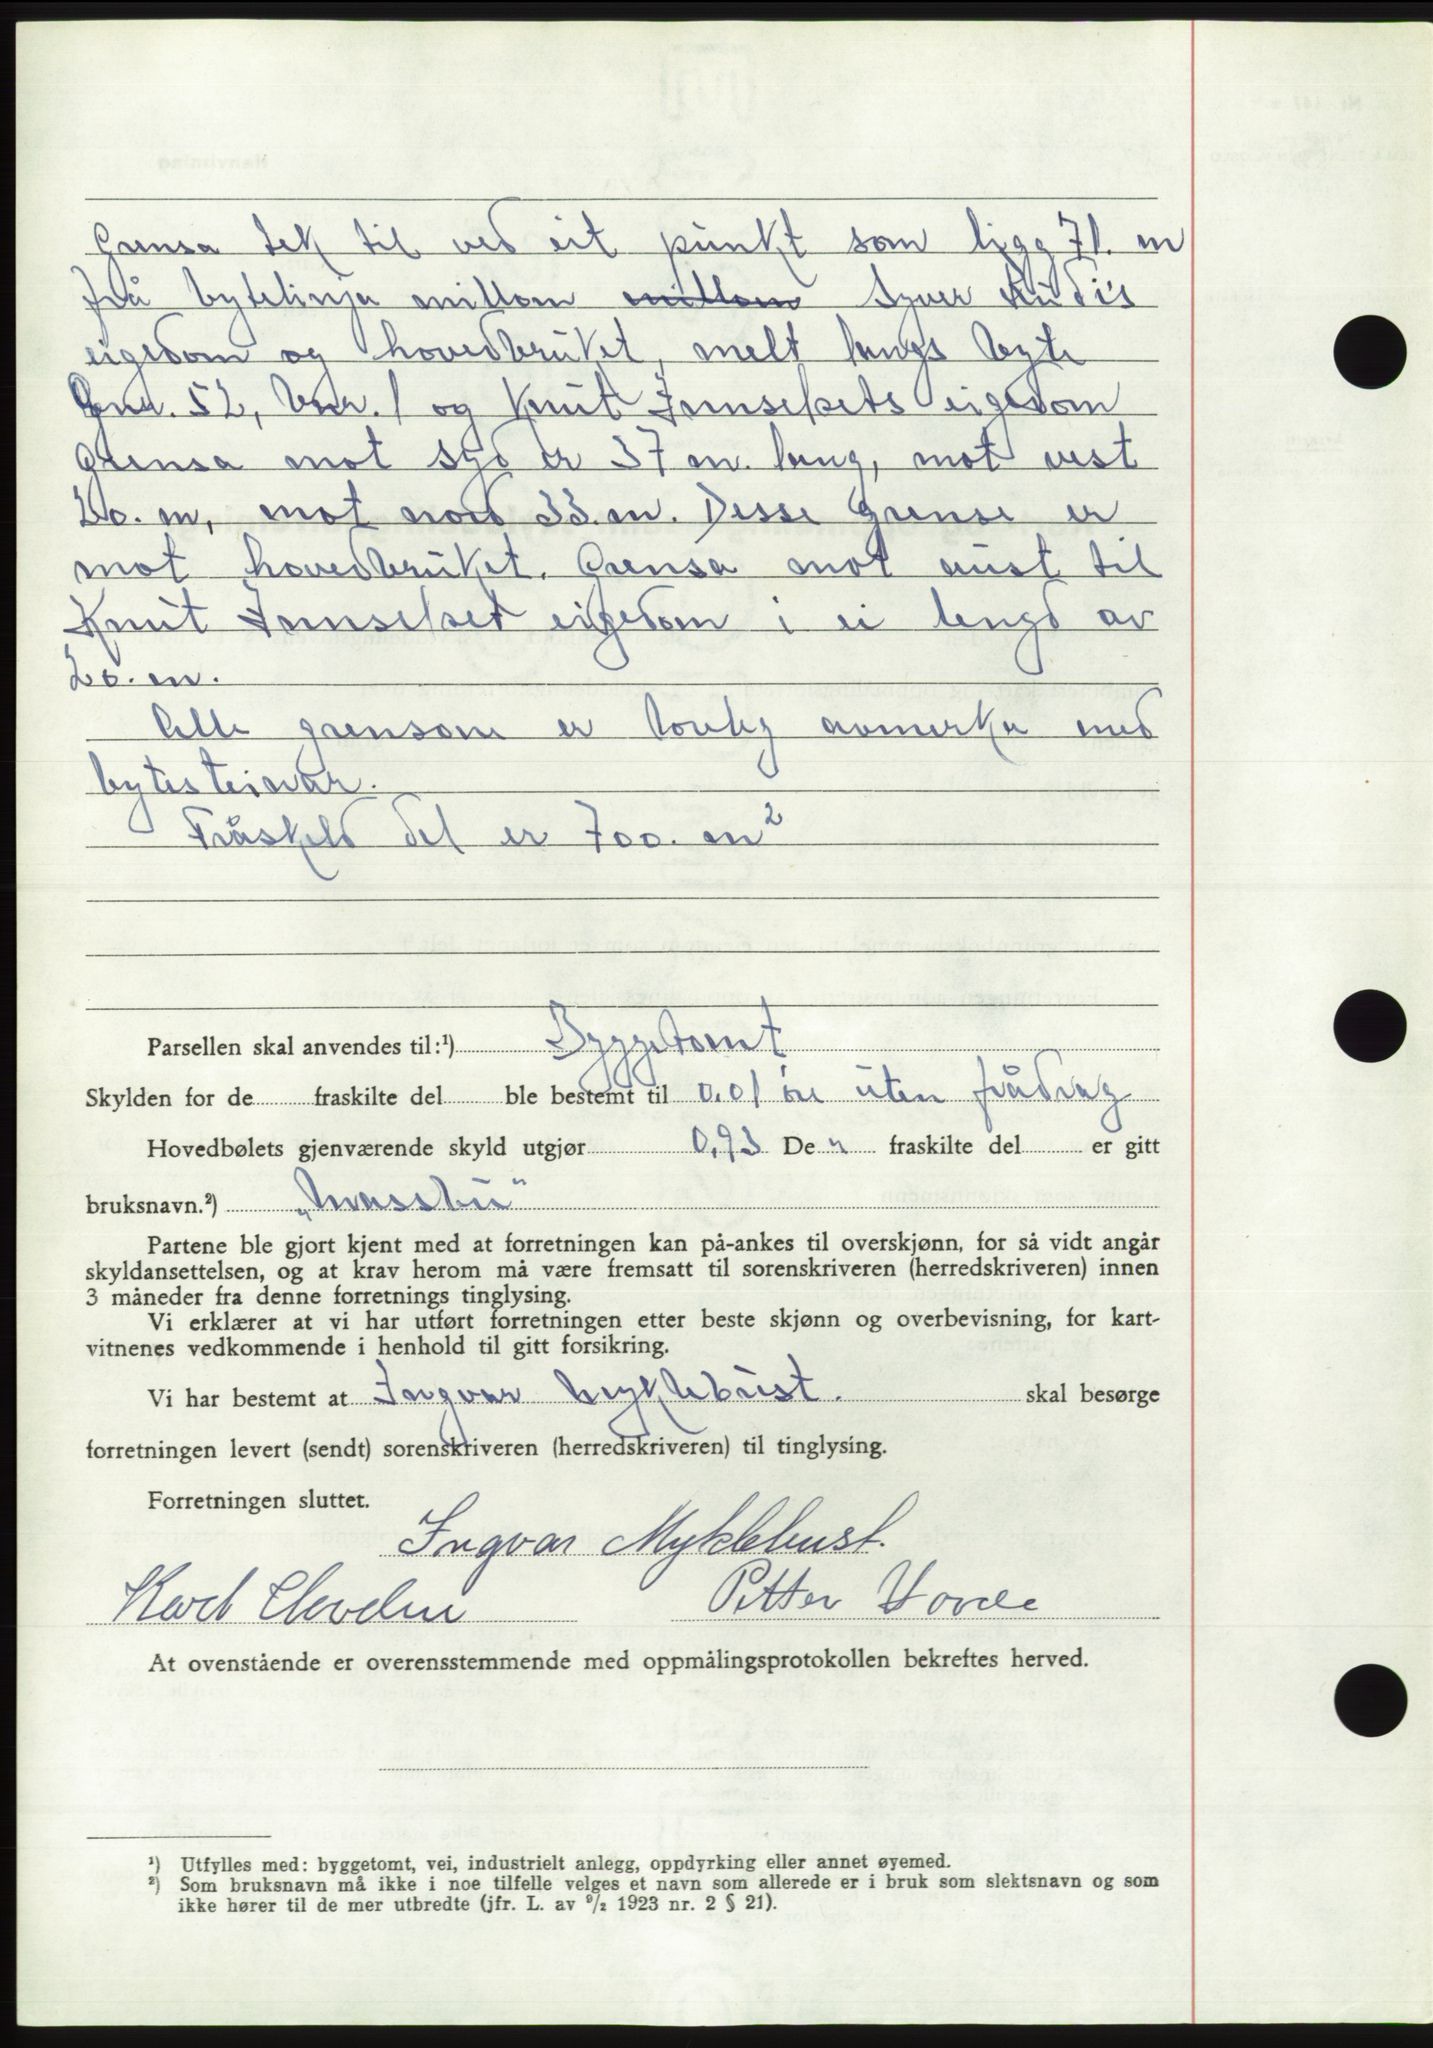 Grensa tek til ved eit punkt som ligg 71. m
frå bytelinja millom millom Syver
eigedom og hovedbruket, melt langs byte
Gnr. 52, bnr. 1 og Knut Innselsets eigedom
Grensa mot syd er 37 m. lang, mot vest
20. m, mot nord 33. m. Desse grense er
mot hovedbruket. Grensa mot aust til
Knut Innselset eigedom i ei lengd av
20. m.
Alle grensone er lovleg avmerka med
bytesteinar.
Fråskeld del er 700. m²
Parsellen skal anvendes til:¹) Byggetomt
Skylden for de fraskilte del ble bestemt til 0.01 øre uten frådrag
Hovedbølets gjenværende skyld utgjør 0,93 De n fraskilte del er gitt
bruksnavn.²)
Partene ble gjort kjent med at forretningen kan på-ankes til overskjønn, for så vidt angår
skyldansettelsen, og at krav herom må være fremsatt til sorenskriveren (herredskriveren) innen
3 måneder fra denne forretnings tinglysing.
Vi erklærer at vi har utført forretningen etter beste skjønn og overbevisning, for kart-
vitnenes vedkommende i henhold til gitt forsikring.
Vi har bestemt at Ingvar Myklebust. skal besørge
forretningen levert (sendt) sorenskriveren (herredskriveren) til tinglysing.
Forretningen sluttet.
Ingvar Myklebust.
Petter
At ovenstående er overensstemmende med oppmålingsprotokollen bekreftes herved.
¹) Utfylles med: byggetomt, vei, industrielt anlegg, oppdyrking eller annet øyemed.
²) Som bruksnavn må ikke i noe tilfelle velges et navn som allerede er i bruk som slektsnavn og som
ikke hører til de mer utbredte (jfr. L. av ⁹/₂ 1923 nr. 2 § 21).